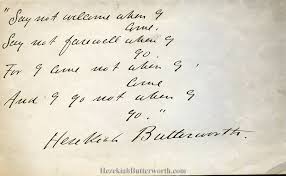 "Say not welcome when I
come.
Say not farewell when I
go.
For I come not when I
come
And I go not when I
go."
Hezekiah Butterworth.
www.HezekiahButterworth.com